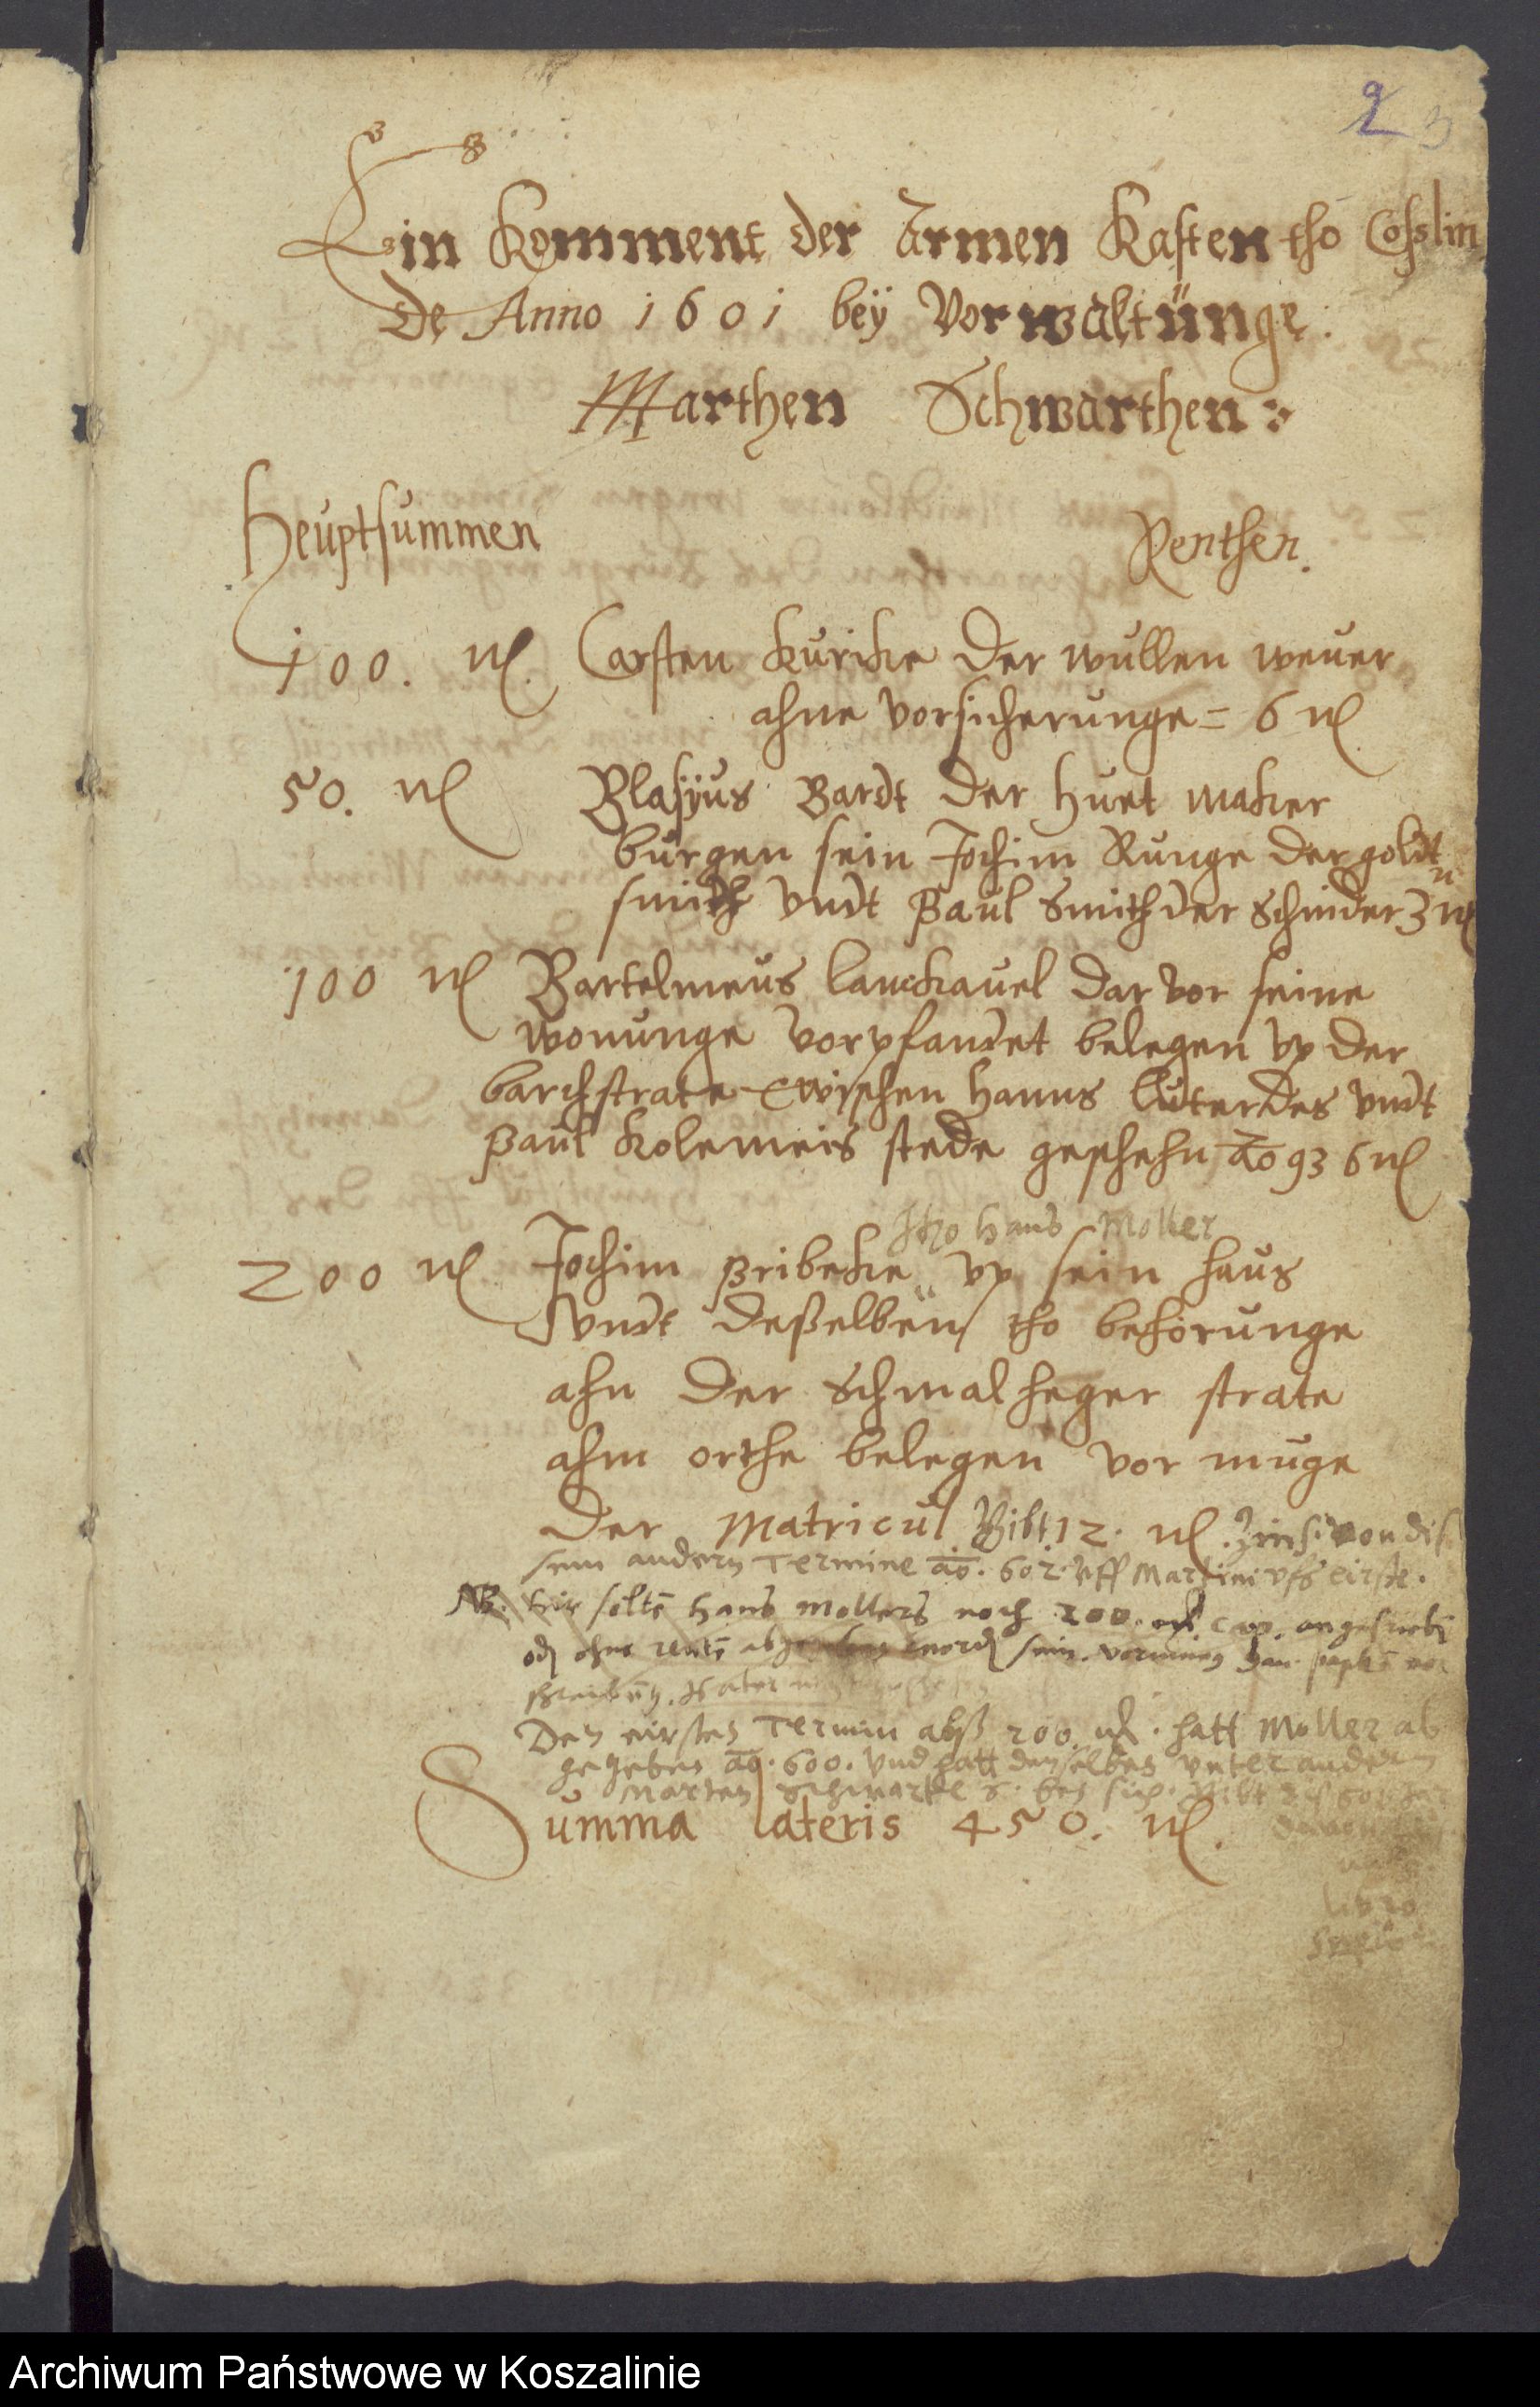 2 3
Ein Komment der Armen Kasten tho Cößlin
De Anno 1601 beÿ Vorwaltünge
Marthen Schwarthen
Heuptsummen Renthen.
100. mk. Carsten Kuricke der wullen wever
ahne vorsicherunge = 6 mk
50. mk Blasÿus Bardt der huet maker
burgen sein Jochim Runge der goldt
smidt vndt Paul Smith der Schnider 3 mk
100 mk Bartelmeus lanckavel dar vor seine
wonunge vorpfandet belegen vp der
barchstrate zwischen Hanns luterdes vndt
Paul Kolemeis stede geschehn Ao 93 6 mk
Itzo Hans Moller
200 mk Jochim Pribeke vp sein haus
vndt deßelben tho behorunge
ahn der Schmalheger strate
ahm orthe belegen vor muge
der Matricul Gibt 12. mk. Zinse von dis
sem andern Termine ao. 602. vff Martini vfs eirste.
NB. hir solte Hans Mollers noch 200. mk cap. angeschriebē
od ohne rente word sein. 
Den eirsten Termin alß 200. mk. hatt Moller ab
gegeben ao. 600. vnd hatt denselben vnter andern
Marten Schwarte bey sich. Gibt
Summa lateris 450. mk.
libro
Archiwum Państwowe w Koszalinie